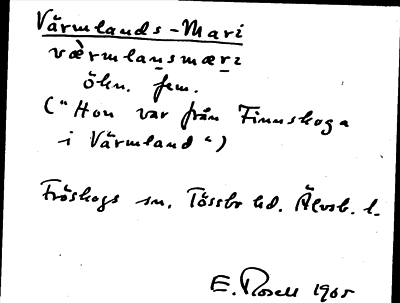 Värmlands-Mari
værmlansmæri
ökn. fem.
("Hon var från Finnskoga
i Värmland")
Fröskogs sn. Tössbo hd. Älvsb. l.
E. Rosell 1965